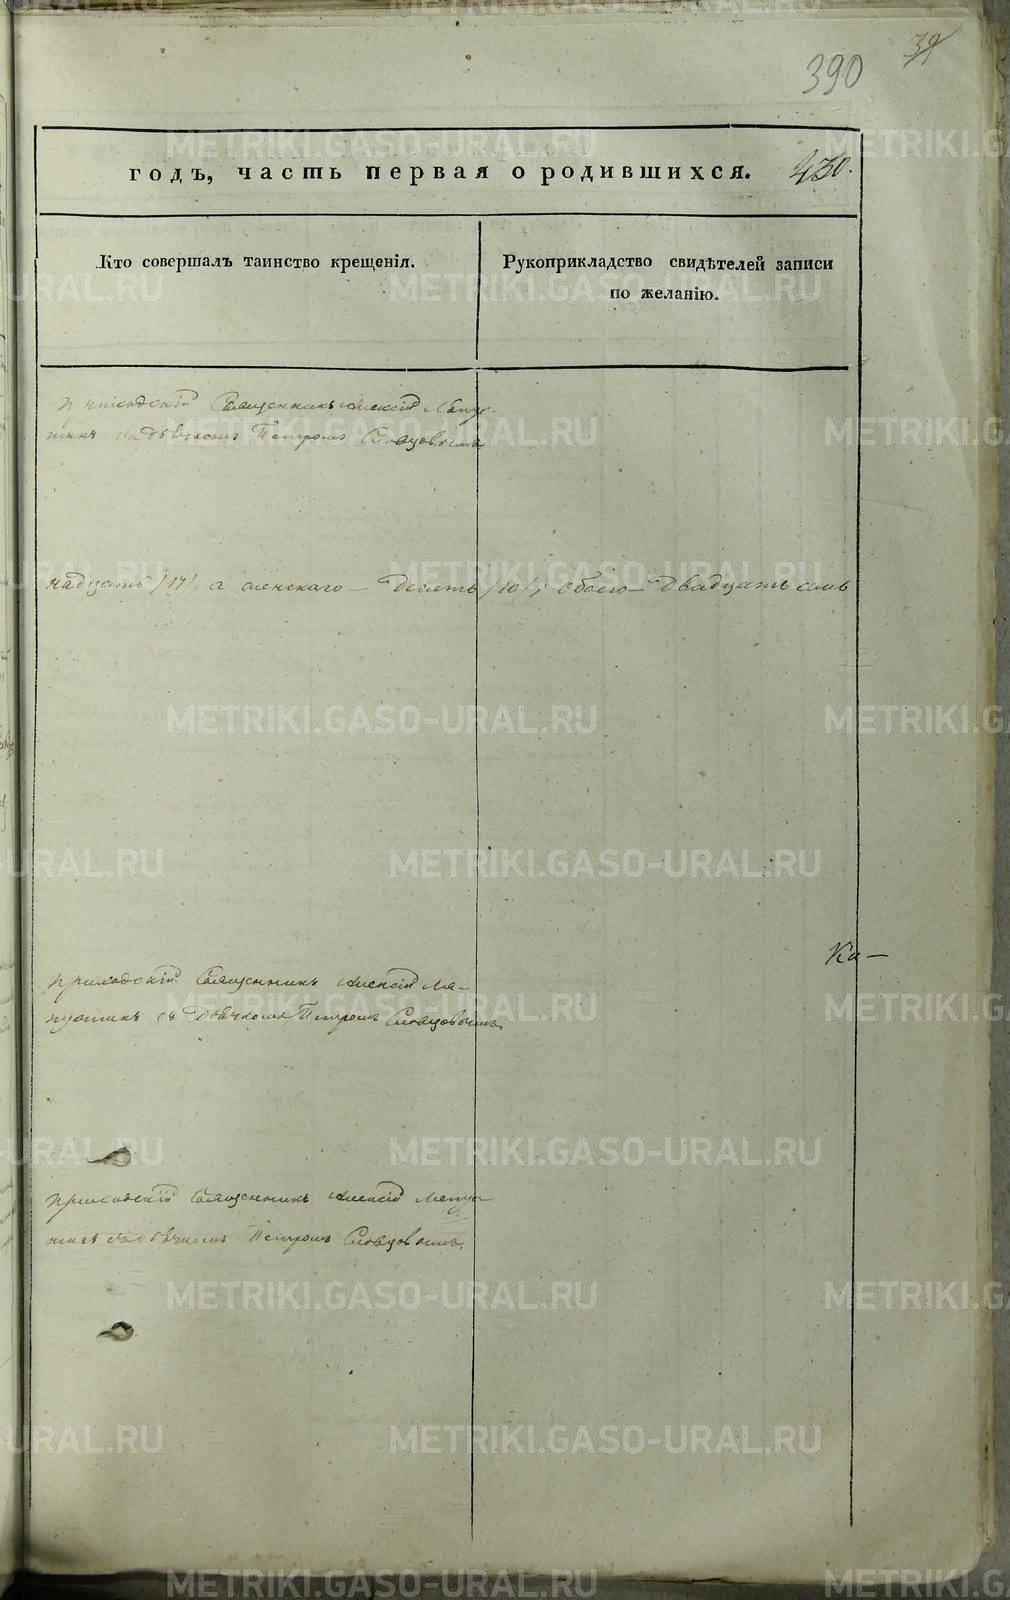 39
390
годъ, часть первая о родившихся. 430.
Кто совершалъ таинство крещенія.
Рукоприкладство свидѣтелей записи
по желанію.
Приходскій Священникъ Алексій Ляпус-
тинъ съ дьячкомъ Петромъ Словцовымъ
надцать /17/, а женскаго – десять /10/, обоего – двадцать семь
Ка –
Приходскій Священникъ Алексій Ля-
пустинъ съ дьячкомъ Петромъ Словцовымъ.
Приходскій Священникъ Алексій Ляпус-
тинъ съ дьячкомъ Петромъ Словцовымъ.
METRIKI.GASO-URAL.RU